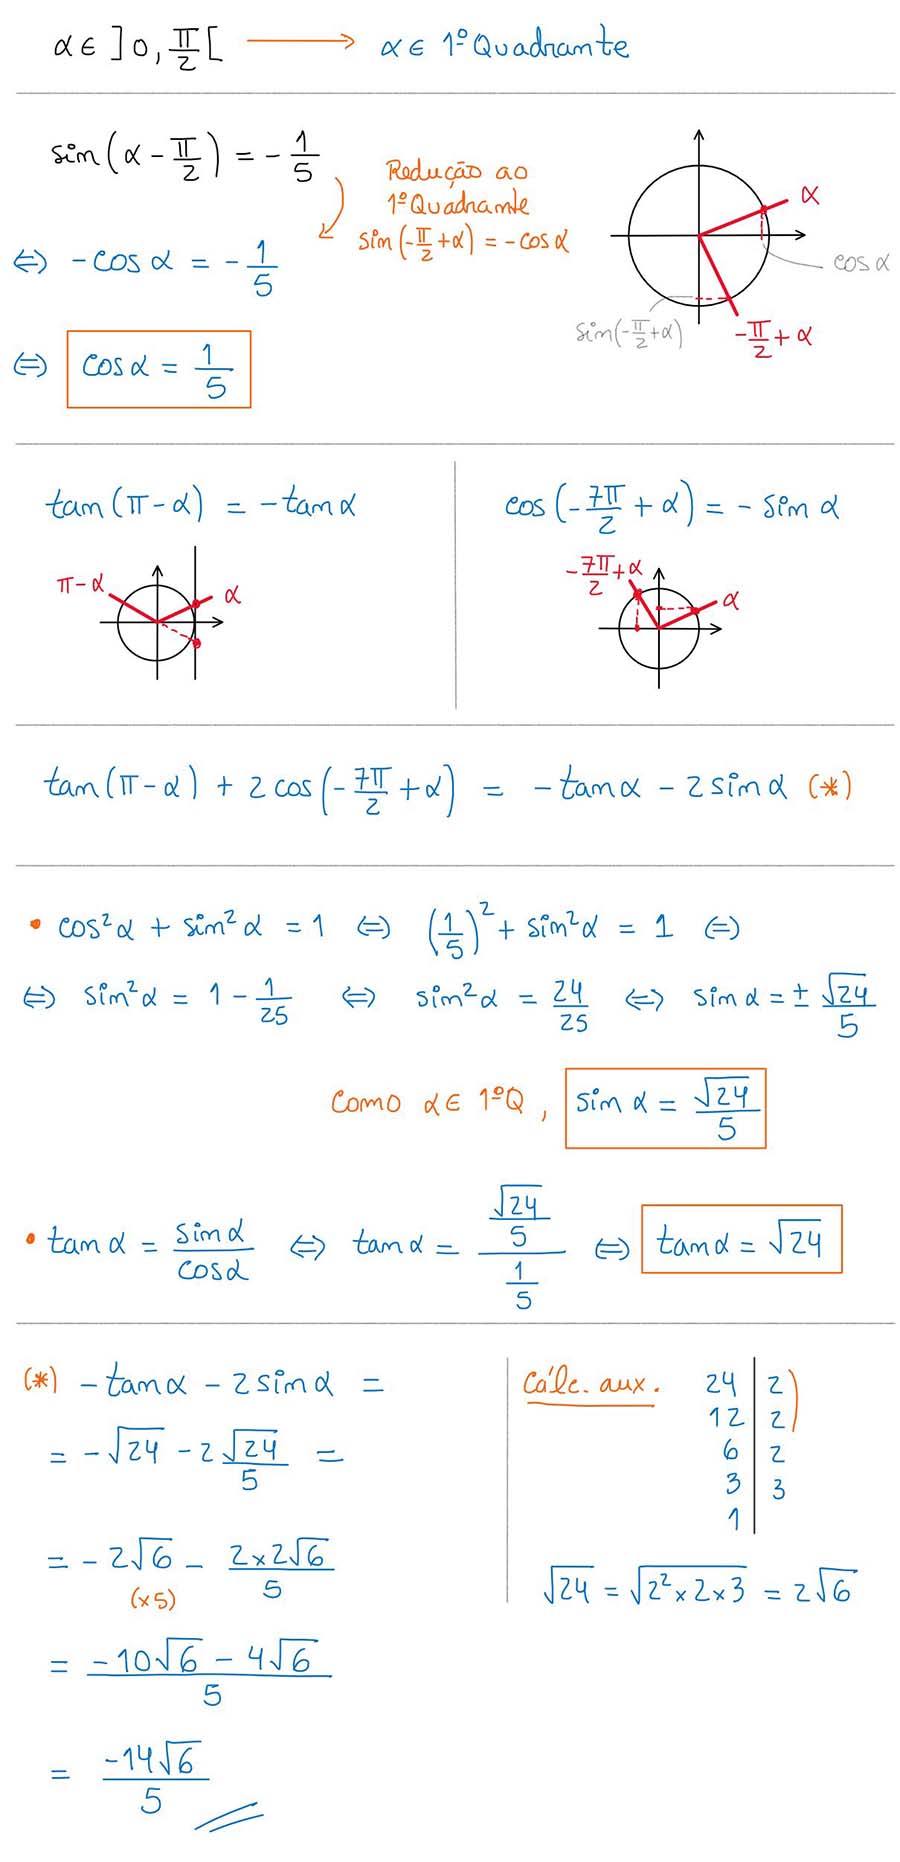 α ∈ ]0, π/2[ ⟶ α ∈ 1º Quadrante
sin(α - π/2) = - 1/5
Redução ao
1º Quadrante
sin(-π/2 + α) = - cos α
⇔ - cos α = - 1/5
⇔ cos α = 1/5
α
cos α
sin(-π/2 + α)
-π/2 + α
tan(π - α) = - tan α
π - α
α
cos(-7π/2 + α) = - sin α
-7π/2 + α
α
tan(π - α) + 2 cos(-7π/2 + α) = - tan α - 2 sin α (*)
• cos² α + sin² α = 1 ⇔ (1/5)² + sin² α = 1 ⇔
⇔ sin² α = 1 - 1/25 ⇔ sin² α = 24/25 ⇔ sin α = ± √24/5
Como α ∈ 1º Q, sin α = √24/5
• tan α = sin α/cos α ⇔ tan α = (√24/5)/(1/5) ⇔ tan α = √24
(*) - tan α - 2 sin α =
= - √24 - 2 √24/5 =
= - 2√6 - (2 × 2√6)/5
(×5)
= (-10√6 - 4√6)/5
= -14√6/5
Cálc. aux.
24 | 2
12 | 2
6 | 2
3 | 3
1
√24 = √(2² × 2 × 3) = 2√6